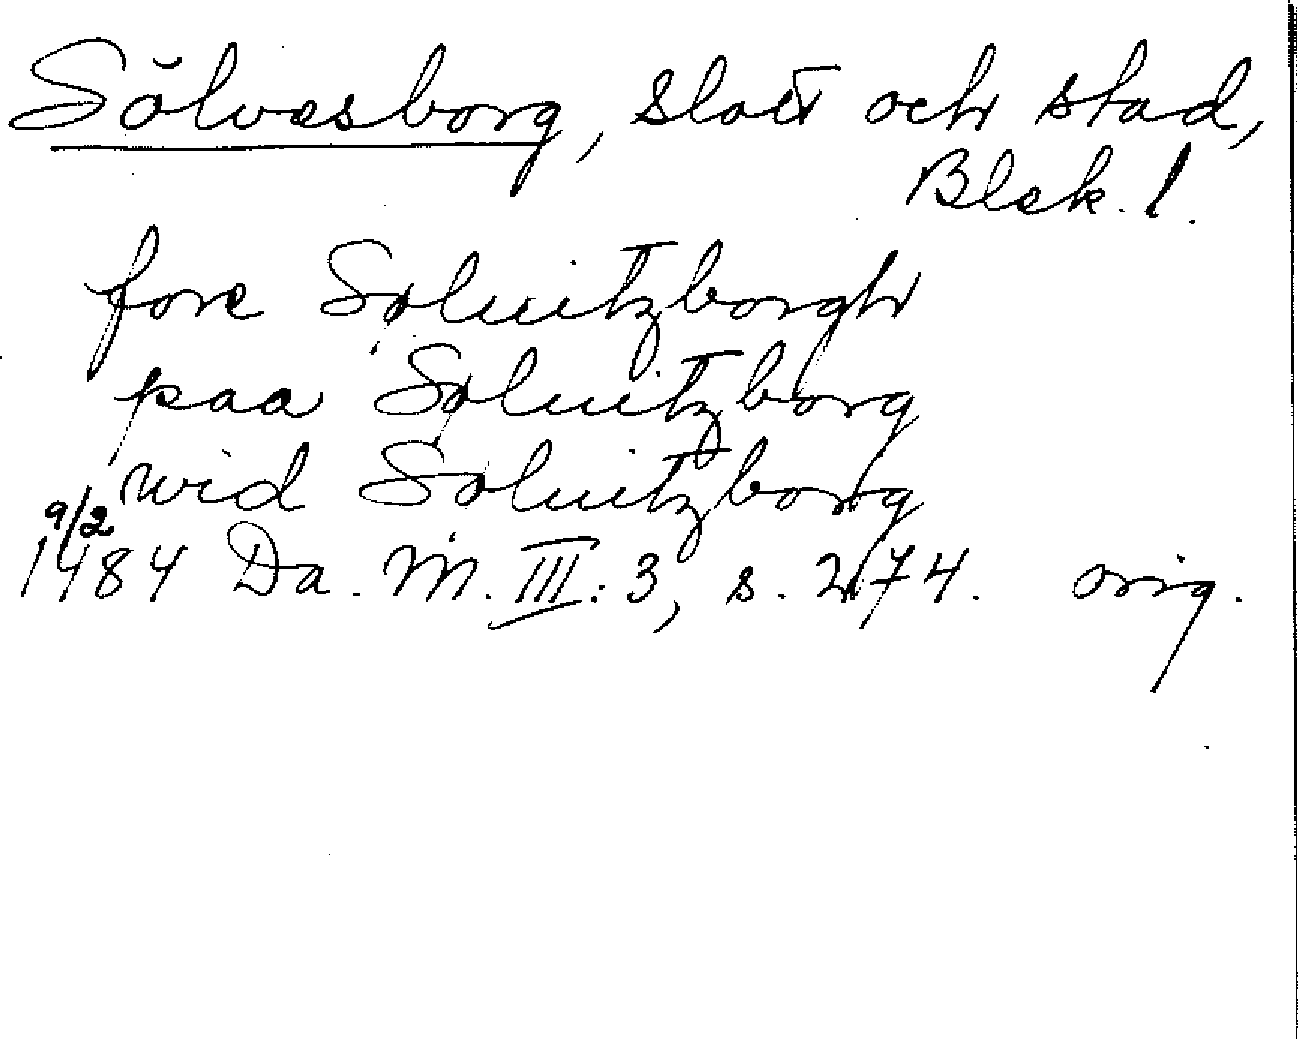 Sölvesborg, slott och stad,
Blek. l.
fore Søluitzborgh
paa Søluitzborg
wid Søluitzborg
9/2
1484 Da. M. III: 3, s. 274. orig.